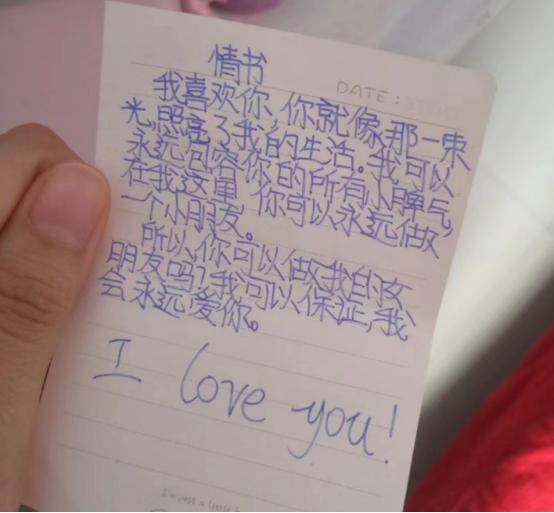 情书
DATE:
我喜欢你,你就像,那一束
光,照亮了我的生活。我可以
永远包容你的所有小脾气,
在我这里 你可以永远做
一个小朋友。
所以,你可以做我的女
朋友吗?我可以保证,我
会永远爱你。
I love you!